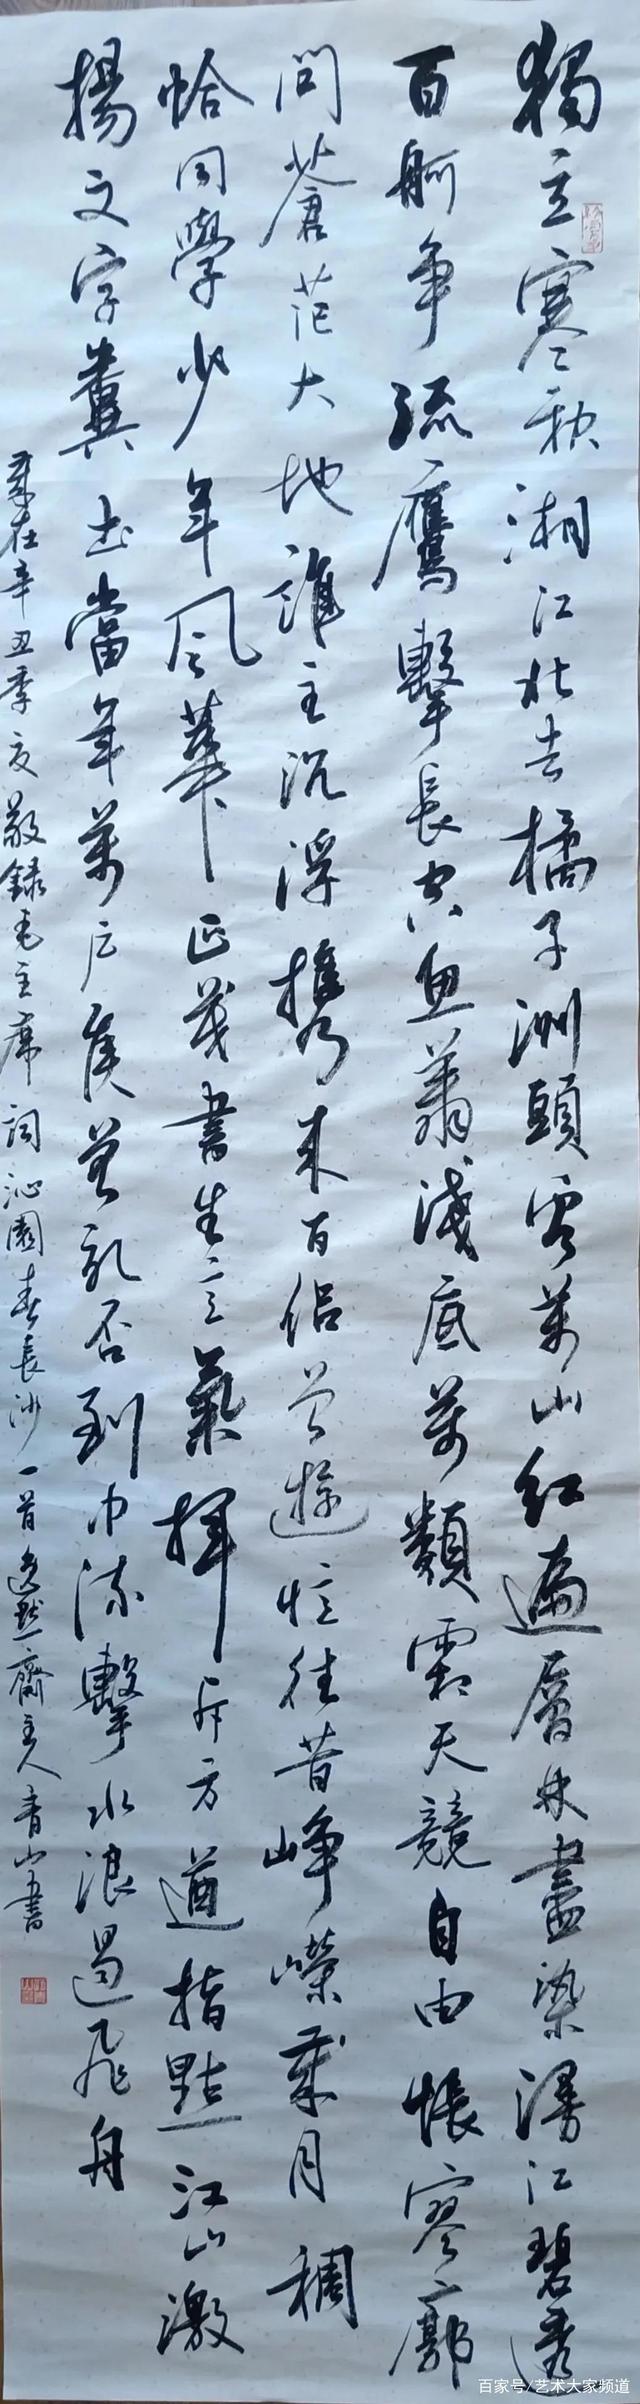 獨立寒秋湘江北去橘子洲頭看萬山红遍層林盡染漫江碧透
百舸争流鷹擊長空魚翔淺底萬類霜天競自由悵寥廓
問蒼茫大地誰主沉浮攜來百侣曾遊憶往昔崢嶸歲月稠
恰同學少年風華正茂書生意氣揮斥方遒指點江山激
揚文字糞土當年萬户侯曾記否到中流擊水浪遏飛舟
歲在辛丑季夏敬録毛主席詞沁園春長沙一首齋主人青山書
百家号/艺术大家频道